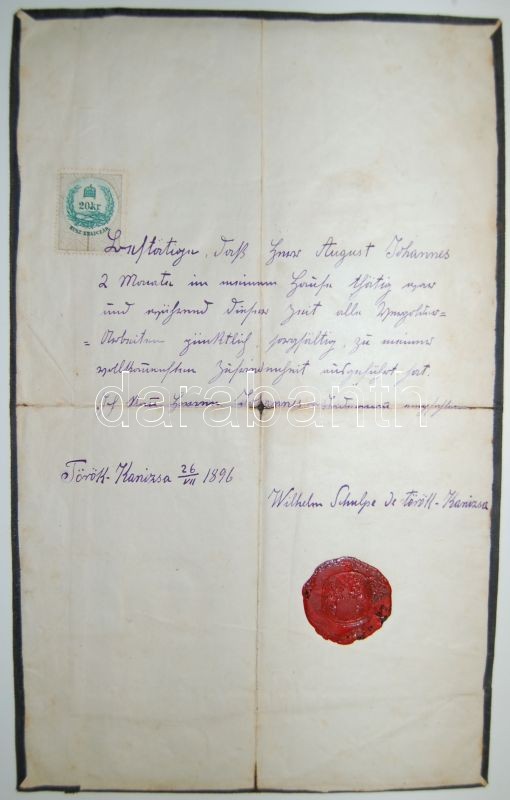 20kr
HUSZ KRAJCZÁR
Bestätige, daß Herr August Johannes
2 Monate in meinem Hause thätig war
und während dieser Zeit alle Vergolder=
=Arbeiten pünktlich, sorgfältig, zu meiner
vollkommensten Zufriedenheit ausgeführt hat.
Ich kann Herrn Johannes empfehlen
darabanth
Török-Kanizsa 26/VII 1896
Wilhelm Schulpe de Török-Kanizsa